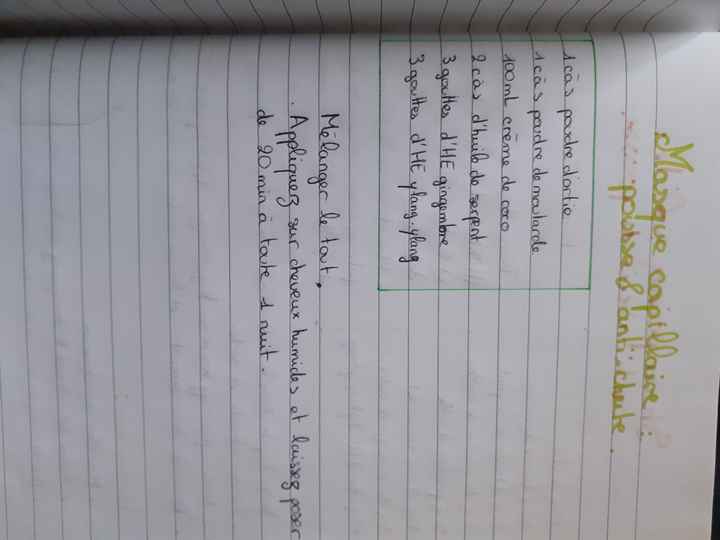 Masque capillaire :
pousse & anti-chute
1 càs poudre d'ortie
1 càs poudre de moutarde
100mL crème de coco
2 càs d'huile de serpent
3 gouttes d'HE gingembre
3 gouttes d'HE ylang-ylang
Mélanger le tout.
. Appliquez sur cheveux humides et laissez poser
de 20 min à toute 1 nuit.